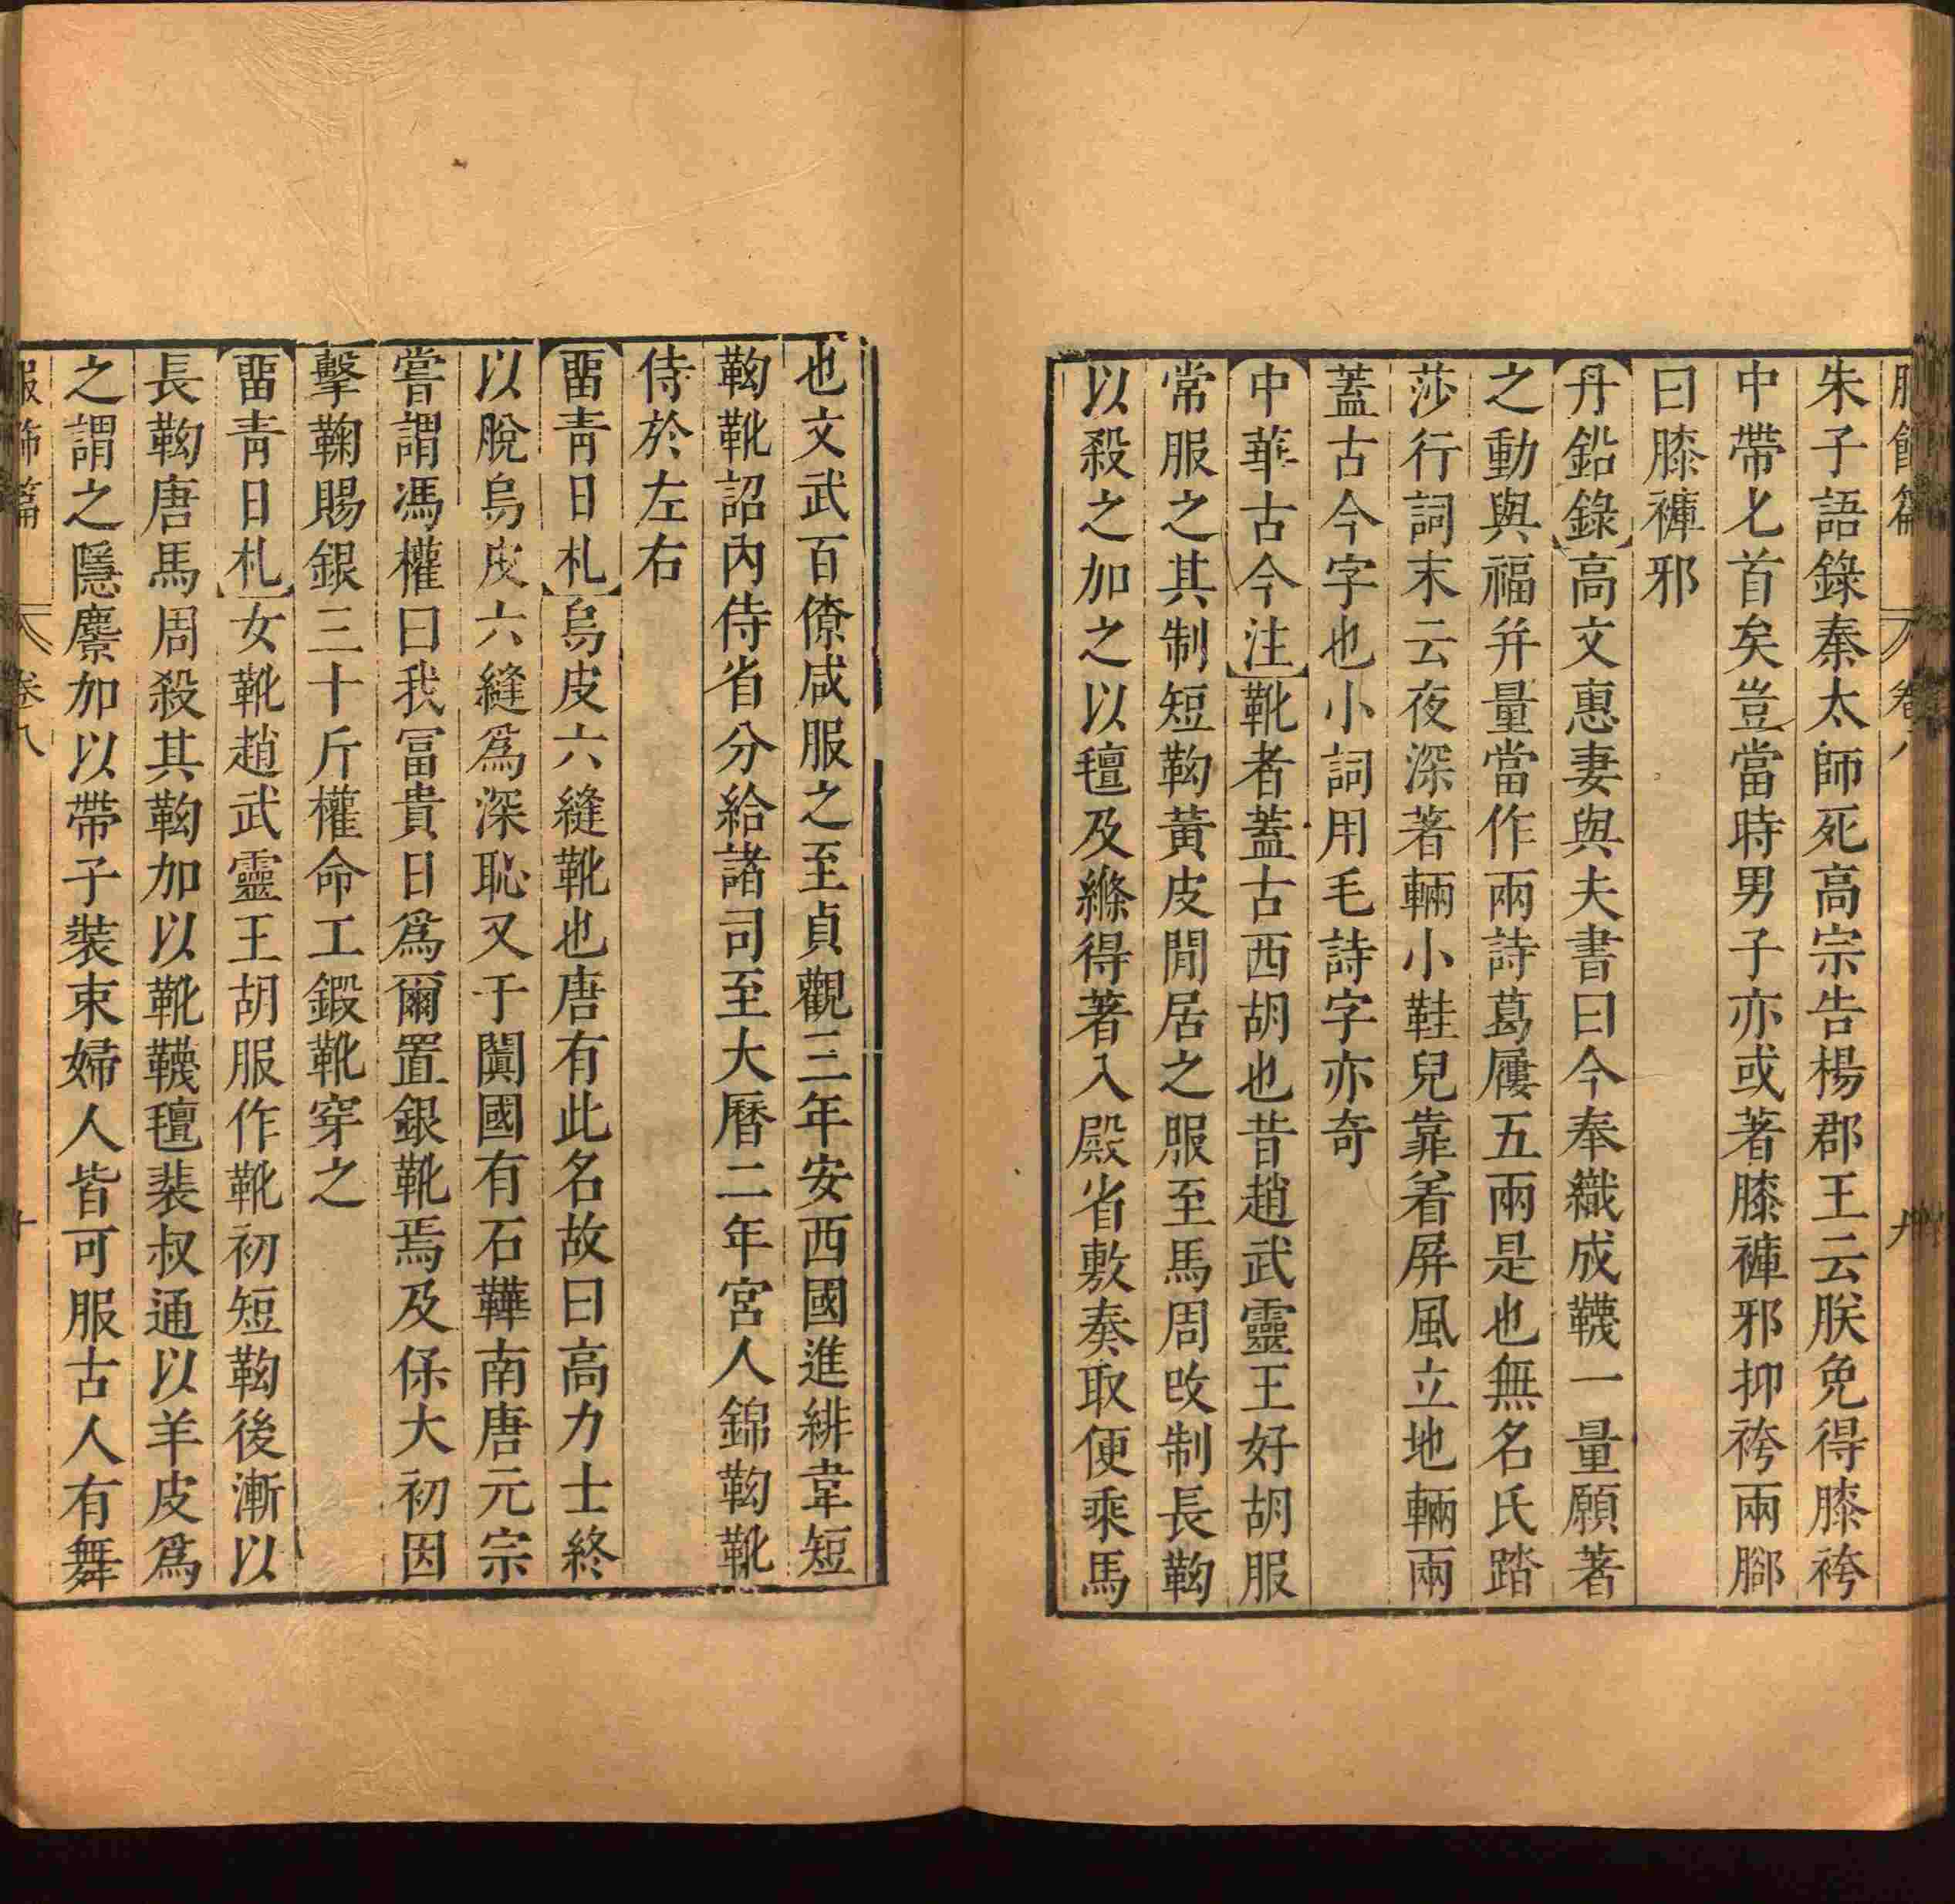 服飾篇 卷八 九
朱子語錄秦太師死高宗告楊郡王云朕免得膝袴
中帶匕首矣豈當時男子亦或著膝褲邪抑袴兩腳
曰膝褲邪
丹鉛錄高文惠妻與夫書曰今奉織成韈一量願著
之動與福并量當作兩詩葛屨五兩是也無名氏踏
莎行詞末云夜深著輛小鞋兒靠着屏風立地輛兩
蓋古今字也小詞用毛詩字亦奇
中華古今注靴者蓋古西胡也昔趙武靈王好胡服
常服之其制短靿黃皮閒居之服至馬周改制長靿
以殺之加之以氊及絛得著入殿省敷奏取便乘馬
也文武百僚咸服之至貞觀三年安西國進緋韋短
靿靴詔內侍省分給諸司至大曆二年宮人錦靿靴
侍於左右
畱青日札烏皮六縫靴也唐有此名故曰高力士終
以脫烏皮六縫爲深恥又于闐國有石鞾南唐元宗
嘗謂馮權曰我冨貴日爲爾置銀靴焉及保大初因
擊鞠賜銀三十斤權命工鍛靴穿之
畱青日札女靴趙武靈王胡服作靴初短靿後漸以
長靿唐馬周殺其靿加以靴韈氊裴叔通以羊皮爲
之謂之隱麖加以帶子裝束婦人皆可服古人有舞
服飾篇 卷八 十